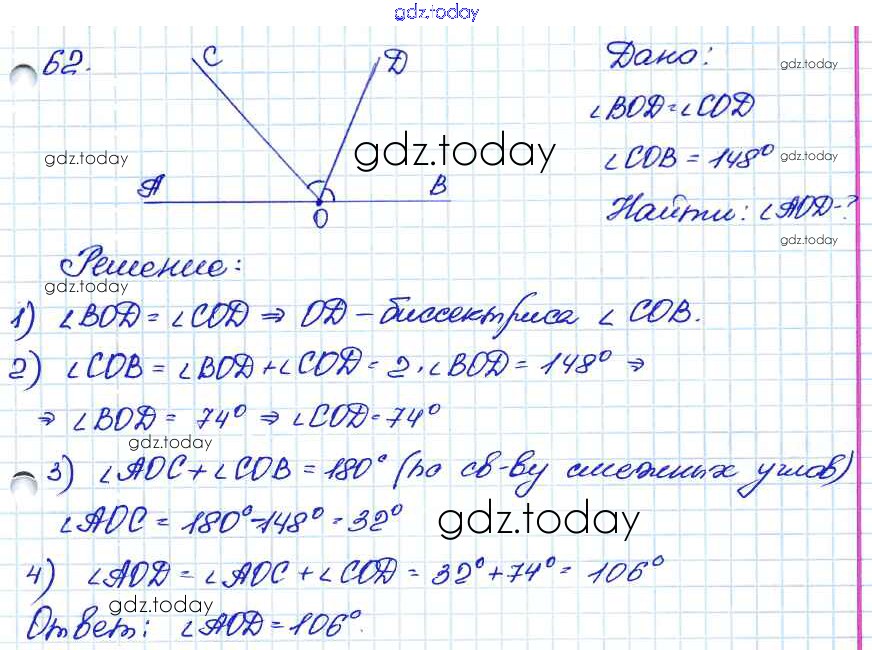 gdz.today
62.
C
D
Дано:
gdz.today
∠BOD=∠COD
gdz.today
gdz.today
∠COB = 148°
gdz.today
A
B
O
Найти: ∠AOD-?
gdz.today
Решение:
gdz.today
1) ∠BOD = ∠COD ⇒ OD – биссектриса ∠ COB.
2) ∠COB = ∠BOD+∠COD = 2·∠BOD = 148° ⇒
⇒ ∠BOD = 74° ⇒ ∠COD=74°
gdz.today
3) ∠AOC+∠COB = 180° (по св-ву смежных углов)
∠AOC = 180°-148° = 32°
gdz.today
4) ∠AOD = ∠AOC + ∠COD = 32°+74° = 106°
gdz.today
Ответ: ∠AOD=106°.